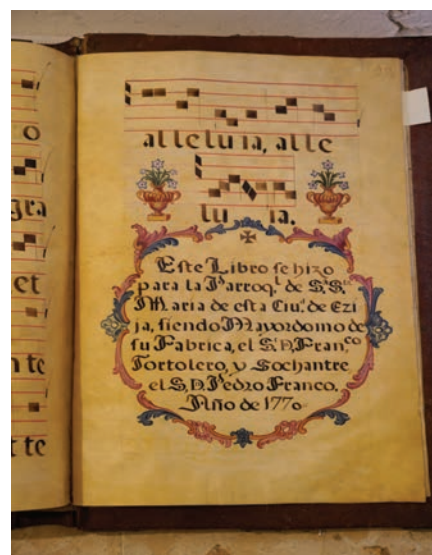 o
gra
et
n te
t te
alleluia, alle
lu ia.
Este Libro se hizo
para la Parroq.l de S.S.
Maria de esta Ciu.d de Ezi
ja, siendo Mayordomo de
su Fabrica, el S.D. Fran.co
Tortolero, y Sochantre
el S.D. Pedro Franco.
Año de 1770